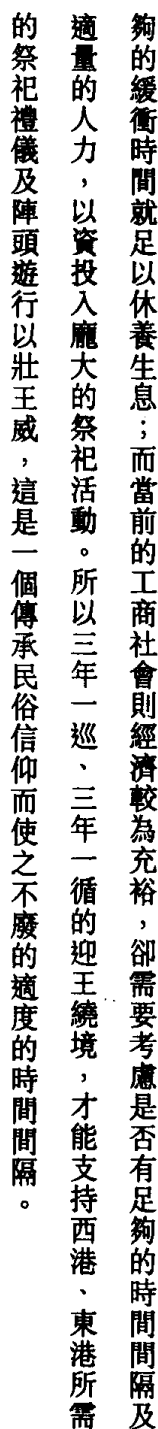 夠的緩衝時間就足以休養生息；而當前的工商社會則經濟較為充裕，卻需要考慮是否有足夠的時間間隔及
適量的人力，以資投入龐大的祭祀活動。所以三年一巡、三年一循的迎王繞境，才能支持西港、東港所需
的祭祀禮儀及陣頭遊行以壯王威，這是一個傳承民俗信仰而使之不廢的適度的時間間隔。